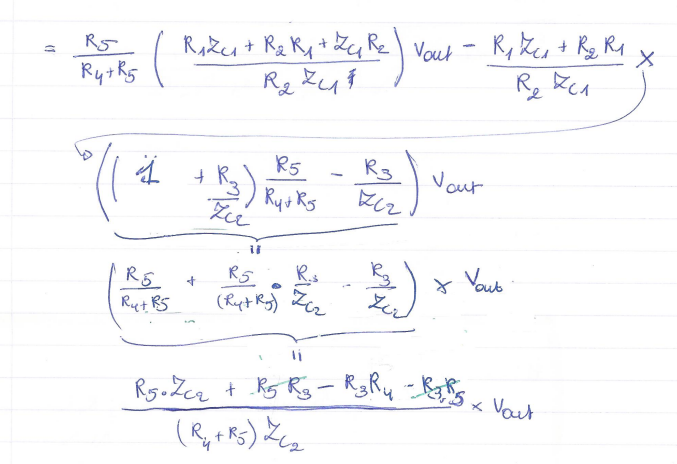 = R5/(R4+R5) ( (R1Zc1 + R2R1 + Zc1R2)/(R2 Zc1) ) Vout - (R1Zc1 + R2R1)/(R2 Zc1) ×
( ( 1 + R3/Zc2 ) R5/(R4+R5) - R3/Zc2 ) Vout
=
( R5/(R4+R5) + R5/(R4+R5) · R3/Zc2 - R3/Zc2 ) × Vout
=
(R5·Zc2 + R5R3 - R3R4 - R3R5)/((R4+R5) Zc2) × Vout